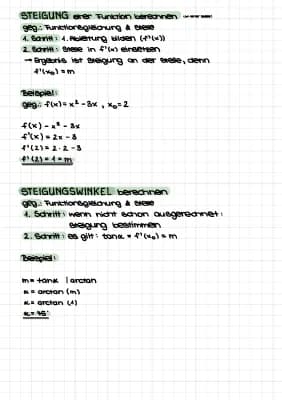 STEIGUNG einer Funktion berechnen
geg.: Funktionsgleichung & Stelle
1. Schritt: 1. Ableitung bilden (f'(x))
2. Schritt: Stelle in f'(x) einsetzen
→ Ergebnis ist Steigung an der Stelle, denn
f'(x₀) = m
Beispiel:
geg.: f(x) = x² - 3x , x₀ = 2
f(x) = x² - 3x
f'(x) = 2x - 3
f'(2) = 2 · 2 - 3
f'(2) = 1 = m
STEIGUNGSWINKEL berechnen
geg.: Funktionsgleichung & Stelle
1. Schritt: wenn nicht schon ausgerechnet:
Steigung bestimmen
2. Schritt: es gilt: tanα = f'(x₀) = m
Beispiel:
m = tanα | arctan
α = arctan (m)
α = arctan (1)
α = 45°